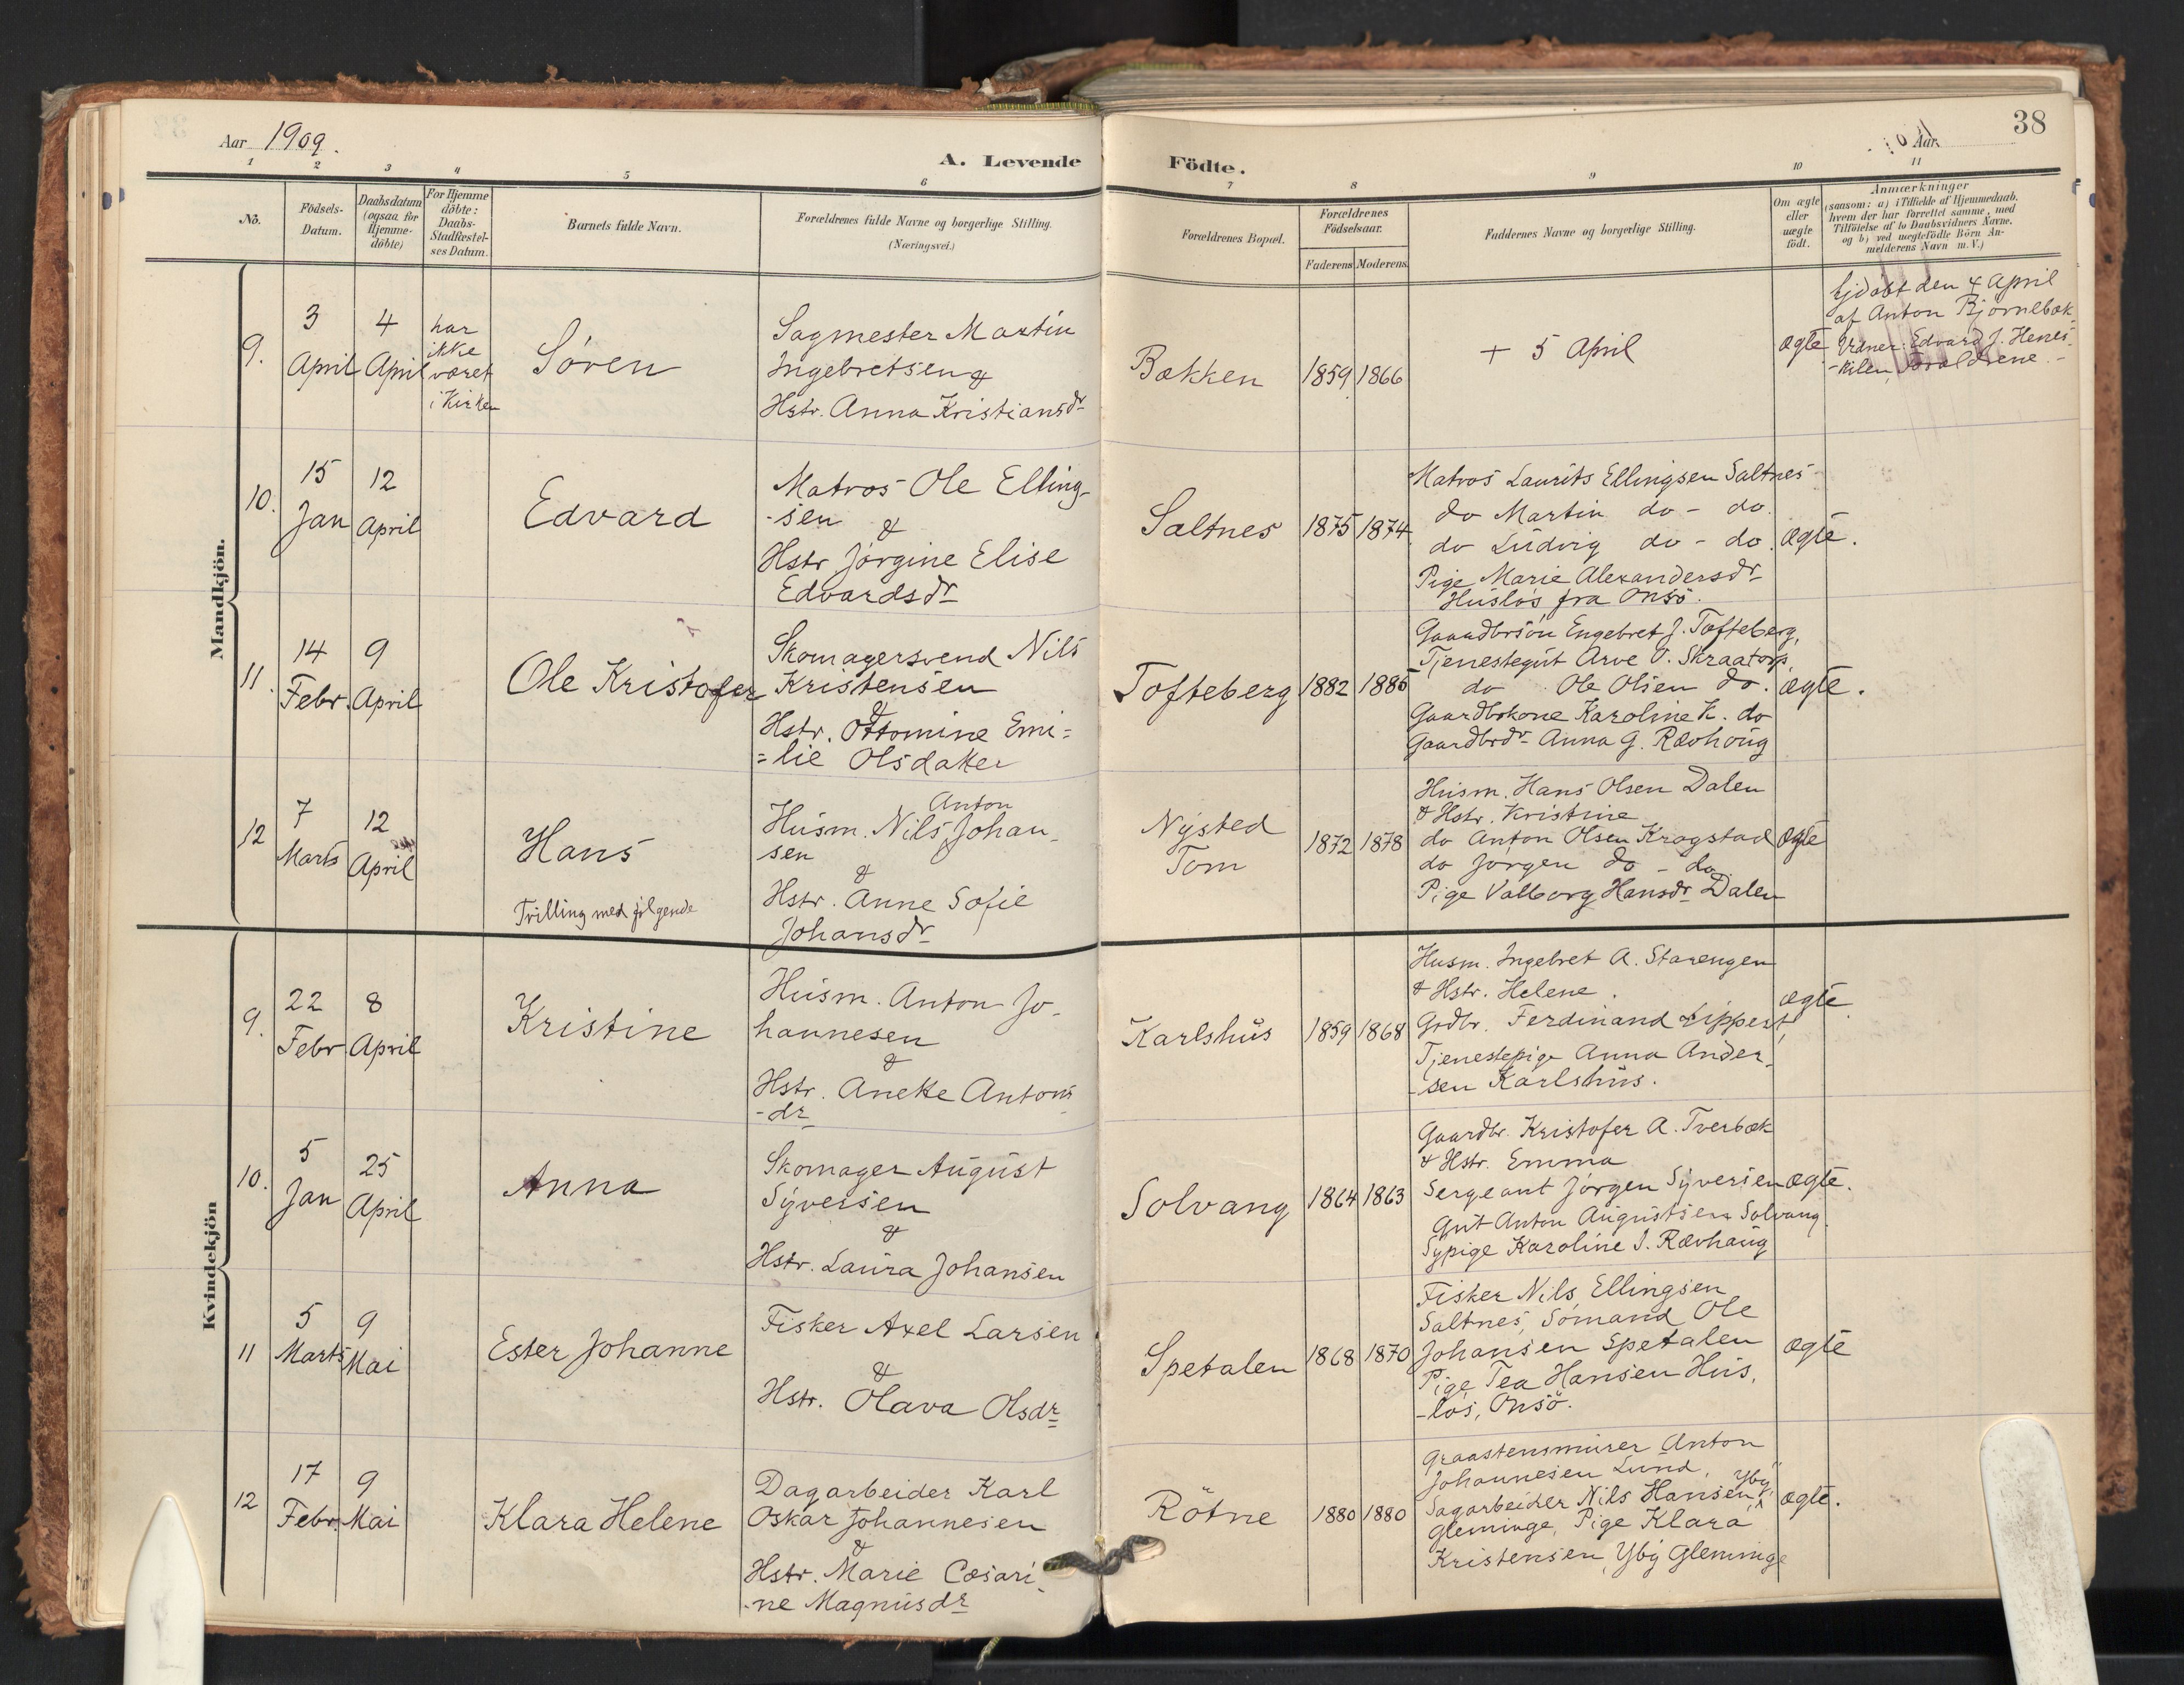 Aar 1909.
A. Levende Födte.
Aar
38
1 2 3 4 5 6 7 8 9 10 11
No.
Födsels-
Datum.
Daabsdatum
(ogsaa for
Hjemme-
döbte)
For Hjemme
döbte:
Daabs-
Stadfæstel-
ses Datum.
Barnets fulde Navn.
Forældrenes fulde Navne og borgerlige Stilling.
(Næringsvei.)
Forældrenes Bopæl.
Forældrenes
Födselsaar.
Faderens Moderens
Faddernes Navne og borgerlige Stilling.
Om ægte
eller
uægte
födt.
Anmærkninger
(saasom: a) i Tilfælde af Hjemmedaab,
hvem der har forrettet samme, med
Tilföielse af to Daabsvidners Navne.
og b) ved uægtefödte Börn An-
melderens Navn m.V.)
Mandkjön.
9.
3
April
4
April
har
ikke
været
i Kirken
Søren
Sagmester Martin
Ingebretsen &
Hstr. Anna Kristiansdr
Bækken
1859
1866
+ 5 April
ægte
Hjdøbt den 4 April
af Anton Bjørnebæk
Vidner: Edvard J. Henes-
-kilen, Forældrene.-
10.
15
Jan
12
April
Edvard
Matros Ole Elling-
-sen
&
Hstr Jørgine Elise
Edvardsdr
Saltnes
1875
1874
Matros Laurits Ellingsen Saltnes
do Martin do - do.
do Ludvig do - do.
Pige Marie Alexandersdr
Husløs fra Onsø.
ægte.
11.
14
Febr.
9
April
Ole Kristofer
Skomagersvend Nils
Kristensen
&
Hstr. Ottomine Emi=
=lie Olsdatter
Tofteberg
1882
1885
Gaardbrsøn Engebret J. Tofteberg,
Tjenestegut Arve O. Skraatorp,
do Ole Olsen do.
Gaardbkone Karoline K. do
Gaardbrdr Anna G. Rævhoug
ægte.
12
7
Marts
12
April
Hans
Tvilling med følgende
Anton
Husm. Nils Johan-
sen
&
Hstr. Anne Sofie
Johansdr
Nysted
Tom
1872
1878
Husm. Hans Olsen Dalen
& Hstr. Kristine
do Anton Olsen Kragstad
do Jørgen do - do
Pige Valborg Hansdr Dalen
ægte
Kvindekjön
9.
22
Febr
8
April
Kristine
Husm. Anton Jo-
hannesen
&
Hstr. Anette Antons
-dr
Karlshus
1859
1868
Husm. Ingebret A. Starengen
& Hstr. Helene.
Grdbr. Ferdinand Lippest,
Tjenestepige Anna Ander-
-sen Karlshus.
ægte.
10.
5
Jan
25
April
Anna
Skomager August
Syversen
&
Hstr. Laura Johansen
Solvang
1864
1863
Gaardbr. Kristofer A. Tverbæk
& Hstr. Emma
Sergeant Jørgen Syversen
Gut Anton Augustsen Solvang.
Sypige Karoline J. Rævhaug
ægte.
11
5
Marts
9
Mai
Ester Johanne
Fisker Axel Larsen
&
Hstr. Olava Olsdr
Spetalen
1868
1870
Fisker Nils Ellingsen
Saltnes, Sømand Ole
Johansen Spetalen
Pige Tea Hansen Hus,
-løs, Onsø.
ægte
12
17
Febr.
9
Mai
Klara Helene
Dagarbeider Karl
Oskar Johannesen
&
Hstr. Marie Cæsari-
-ne Magnusdr
Rötne
1880
1880
Graastensmurer Anton
Johannesen Lund,
Sagarbeider Nils Hansen, Yby,
Glemminge, Pige Klara
Kristensen, Yby Glemminge
ægte.